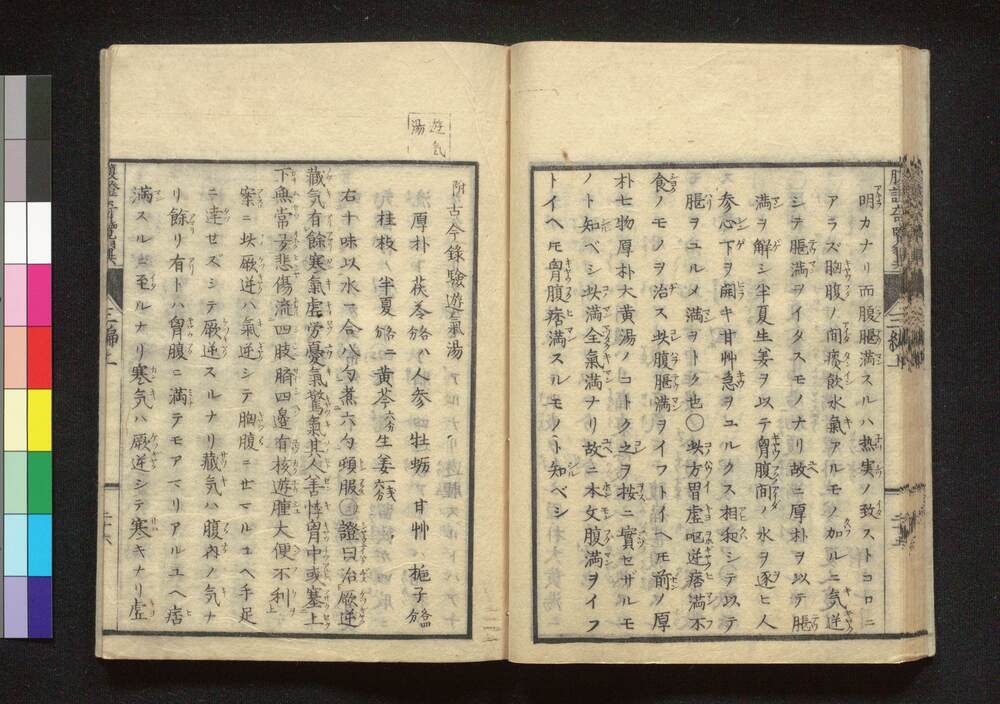 明カナリ而腹脹満スルハ熱実ノ致ストコロニ
アラズ胸腹ノ間痰飲水氣アルモノ加ルニ気逆
シテ脹満ヲイタスモノナリ故ニ厚朴ヲ以テ脹
満ヲ解シ半夏生姜ヲ以テ胷腹間ノ水ヲ逐ヒ人
参心下ヲ開キ甘艸急ヲユルクス相和シテ以テ
脹ヲユルメ満ヲトク也〇此方胃虚嘔逆痞満不
食ノモノヲ治ス此腹脹満ヲイフトイヘモ前ノ厚
朴七物厚朴大黄湯ノコトク之ヲ按ニ實セサルモ
ノト知ベシ此満全氣満ナリ故ニ本文腹満ヲイフ
トイヘモ胷腹痞満スルモノト知ベシ
三編上
二十五
遊気湯
附古今錄驗遊氣湯
厚朴 茯苓 人参 牡蛎 甘艸 梔子
桂枝 半夏 黄芩 生姜
右十味以水一合八勺煮六勺頓服〇證曰治厥逆
藏気有餘寒氣虚労憂氣驚氣其人善悸胷中或塞上
下無常多悲傷流四肢臍四邊有核遊腫大便不利
案ニ此厥逆ハ氣逆シテ胸腹ニセマルユヘ手足
ニ達セズシテ厥逆スルナリ藏気ハ腹内ノ気ナ
リ餘リ有トハ胷腹ニ満テモアマリアルユヘ痞
満スルニ至ルナリ寒気ハ厥逆シテ寒キナリ虚
三編上
二十六